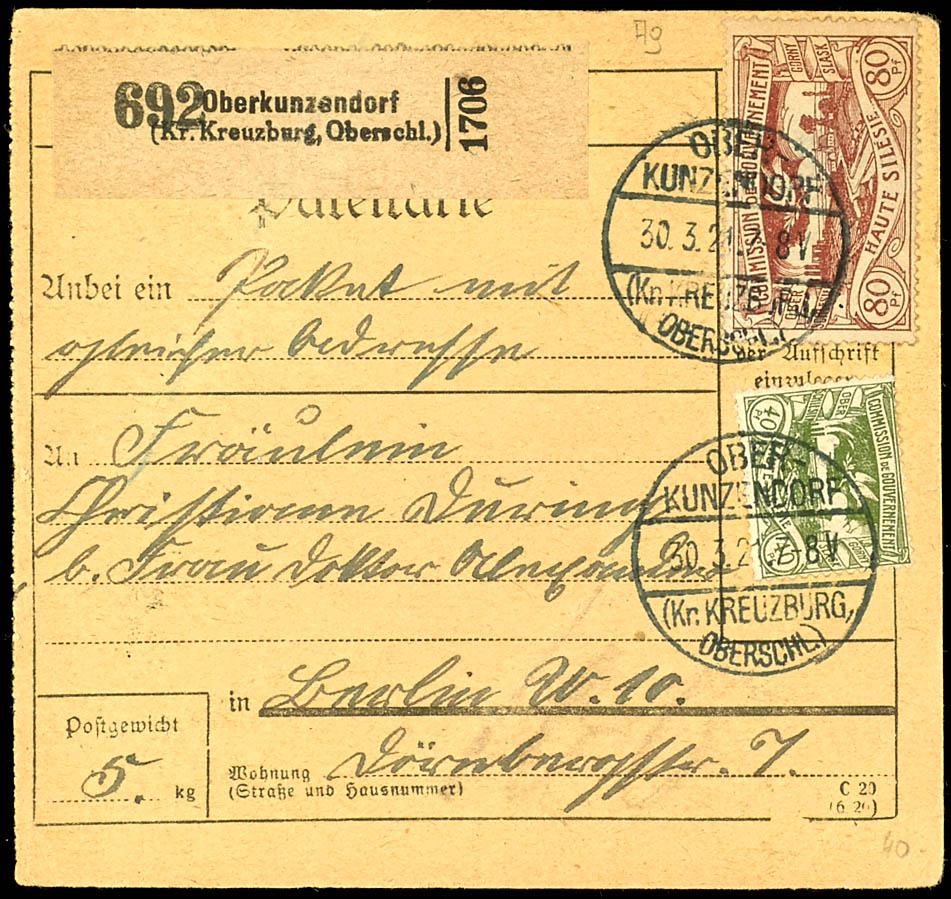 Ag
692 Oberkunzendorf
(Kr. Kreuzburg, Oberschl.)
1706
Paketkarte
COMMISSION DE GOUVERNEMENT
GORNY SLASK
HAUTE SILESIE
80 Pf
80 Pf
OBER-
KUNZENDORF
30. 3. 21. 7. 8 V
(Kr. KREUZBURG,
OBERSCHL.)
Anbei ein Paket mit
gleicher Adresse
der Aufschrift
einzulegen
COMMISSION DE GOUVERNEMENT
OBER
40
OBER-
KUNZENDORF
30. 3. 21. 7. 8 V
(Kr. KREUZBURG,
OBERSCHL.)
An Fräulein
Christiane During
b. Frau Doktor
in Berlin W. 10.
Postgewicht
5. kg
Wohnung Dörnbergstr. 7.
(Straße und Hausnummer)
C 20
(6. 20)
40-